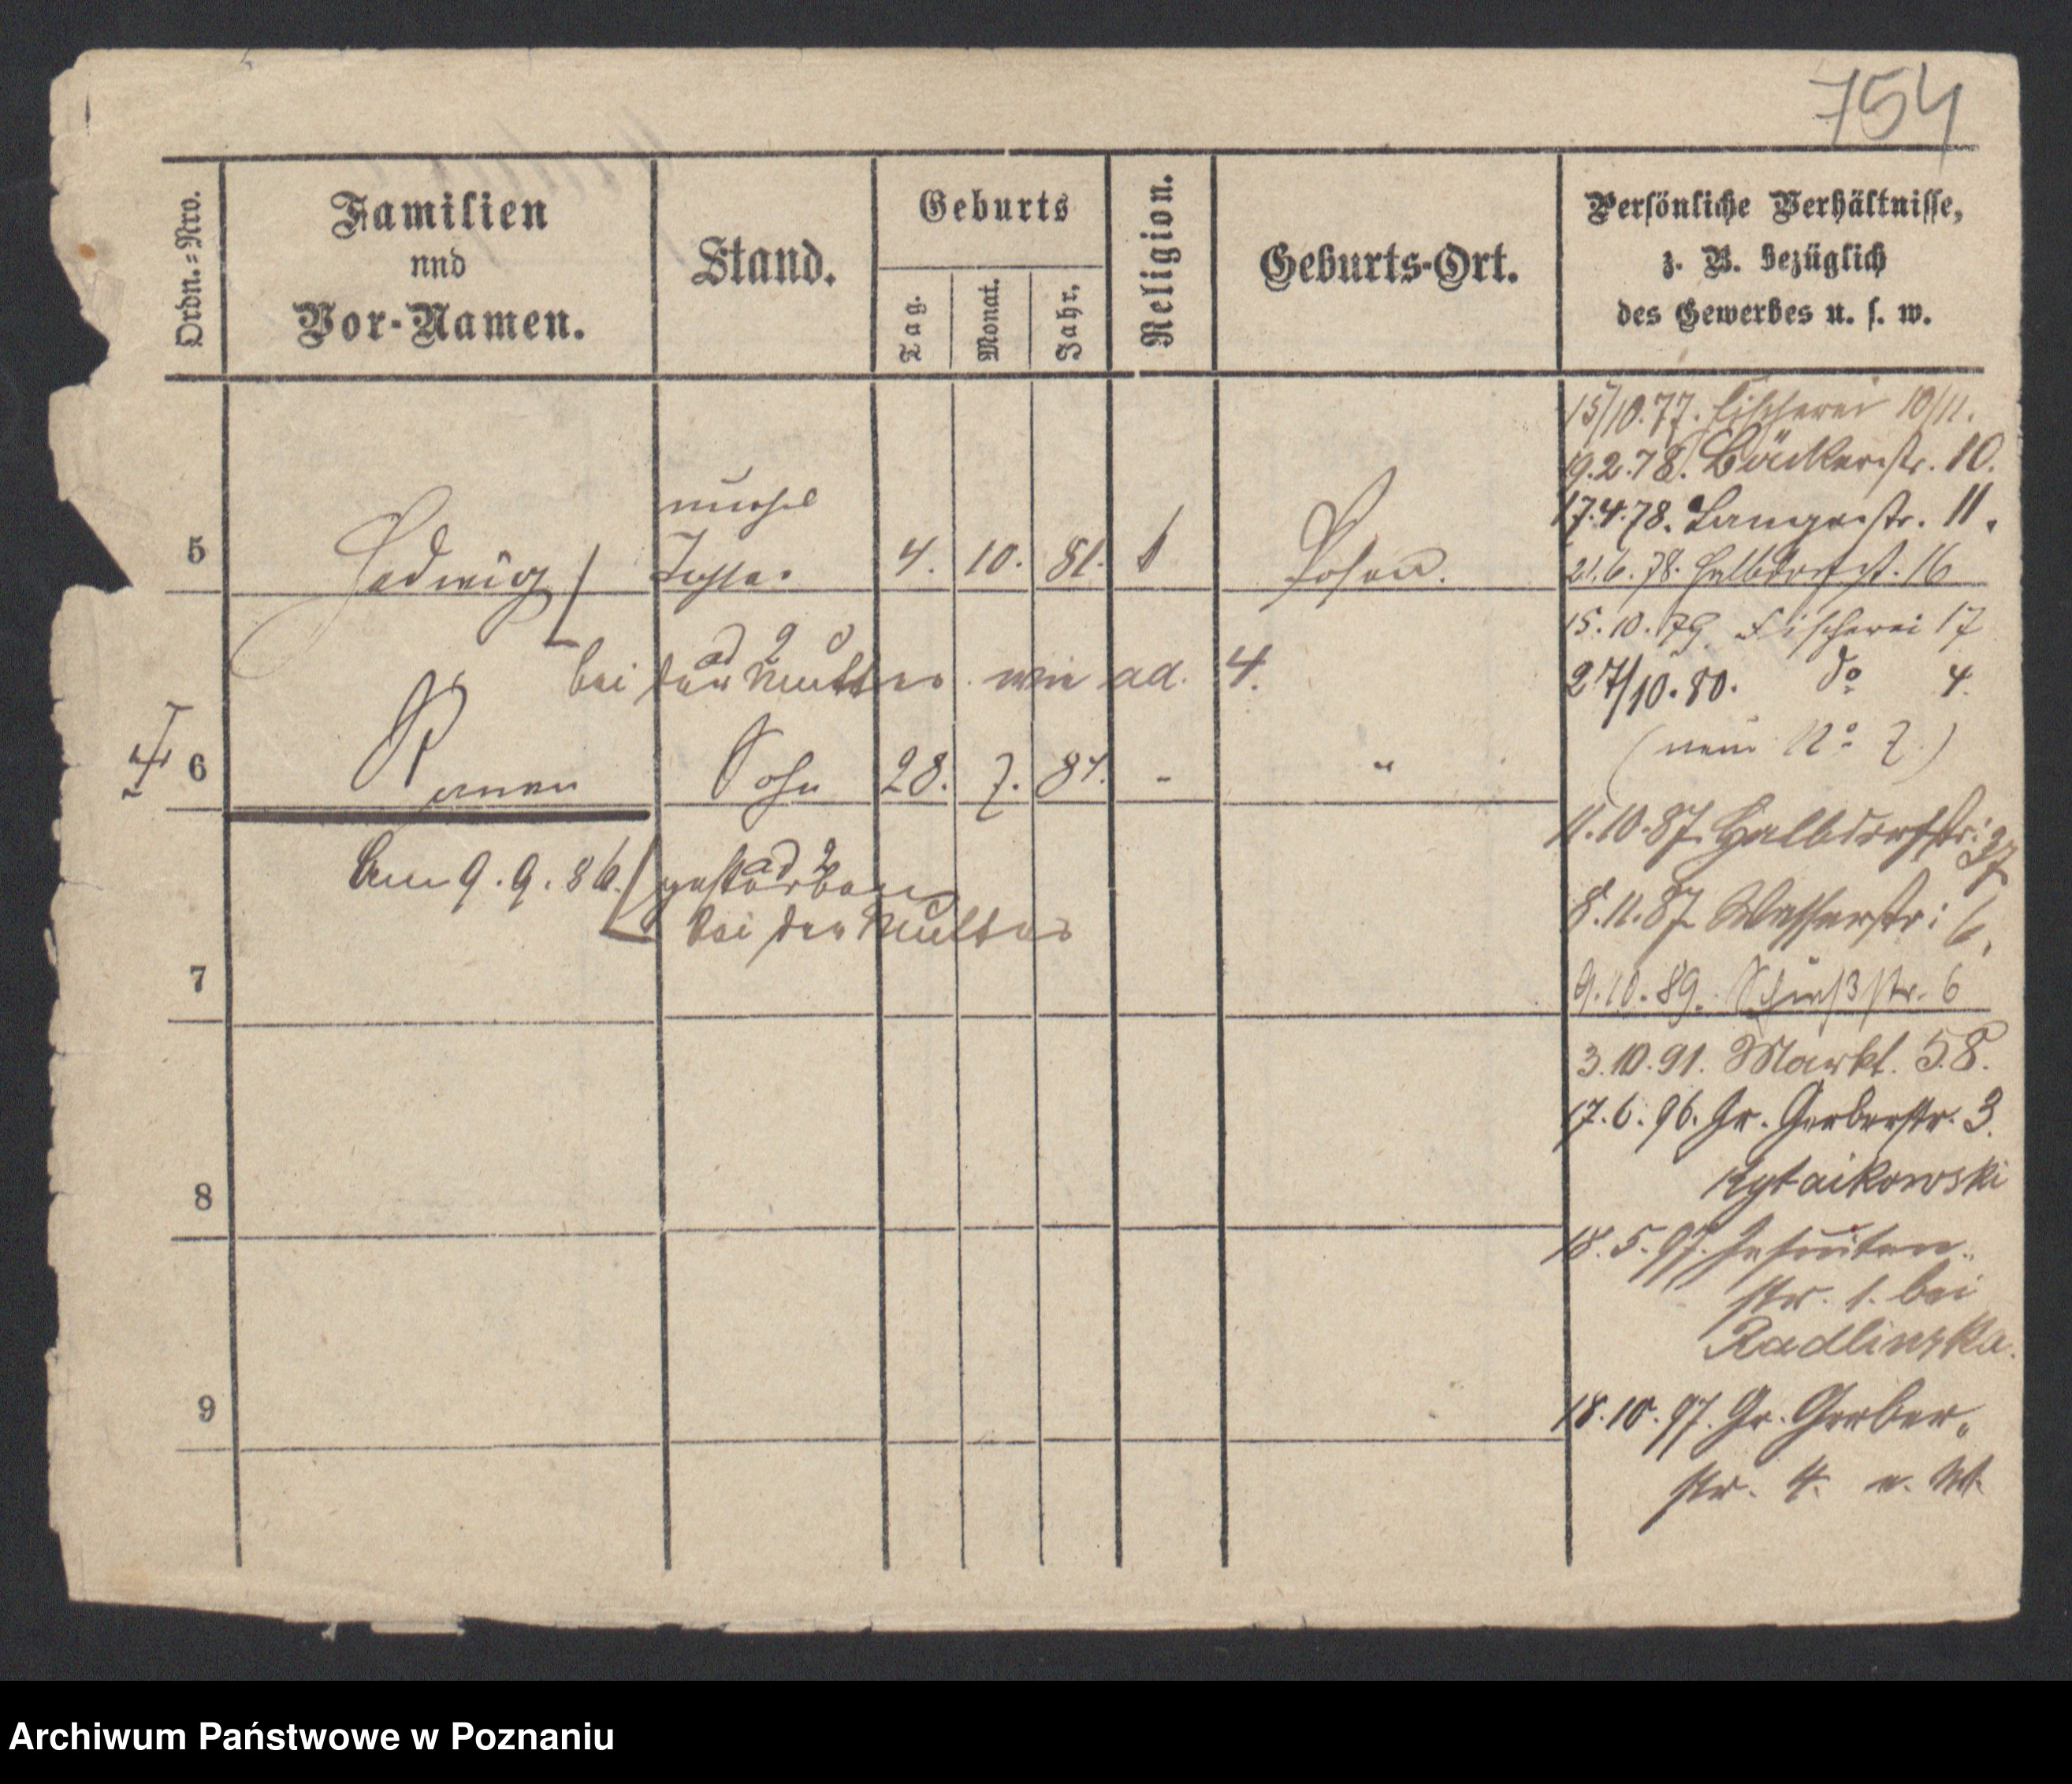 754
Ordn.=Nro.
Familien
nnd
Vor-Namen.
Stand.
Geburts
Tag.
Monat.
Jahr.
Religion.
Geburts-Ort.
Persönliche Verhältnisse,
z. B. bezüglich
des Gewerbes u. s. w.
5
Hedwig
unehel
Tochter
4. 10. 81.
Posen.
ad 2
bei der Mutter wie ad. 4.
6
Sohn
28. 7. 84.
-
"
Am 9. 9. 86. gestorben
ad 2
bei der Mutter
7
8
9
15/10.77. Fischerei 10/11.
19.2.78. Bäckerstr. 10.
17.4.78. Langestr. 11.
21.6.78. Halbdorfst. 16
15.10.79. Fischerei 17
27/10.80. do 4.
(neue No 7.)
11.10.87 Halbdorfstr: 37
8.11.87 Wasserstr: 6.
9.10.89. Schießstr. 6
3.10.91. Markt. 58.
17.6.96. Gr. Gerberstr. 3.
Rytaikowski
18.5.97. Jesuiten-
str. 1. bei
Radlinska.
18.10.97. Gr. Gerber-
str. 4. n. W.
Archiwum Państwowe w Poznaniu